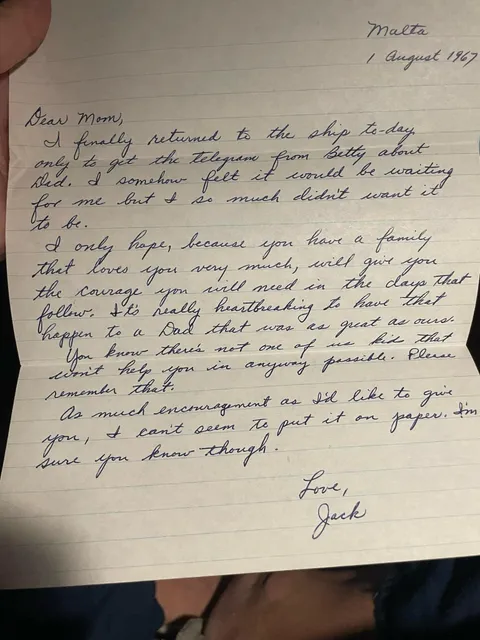 Malta
1 August 1967
Dear Mom,
I finally returned to the ship to-day
only to get the telegram from Betty about
Dad. I somehow felt it would be waiting
for me but I so much didn't want it
to be.
I only hope, because you have a family
that loves you very much, will give you
the courage you will need in the days that
follow. It's really heartbreaking to have that
happen to a Dad that was as great as ours.
You know there's not one of us kids that
won't help you in anyway possible. Please
remember that.
As much encouragement as I'd like to give
you, I can't seem to put it on paper. I'm
sure you know though.
Love,
Jack